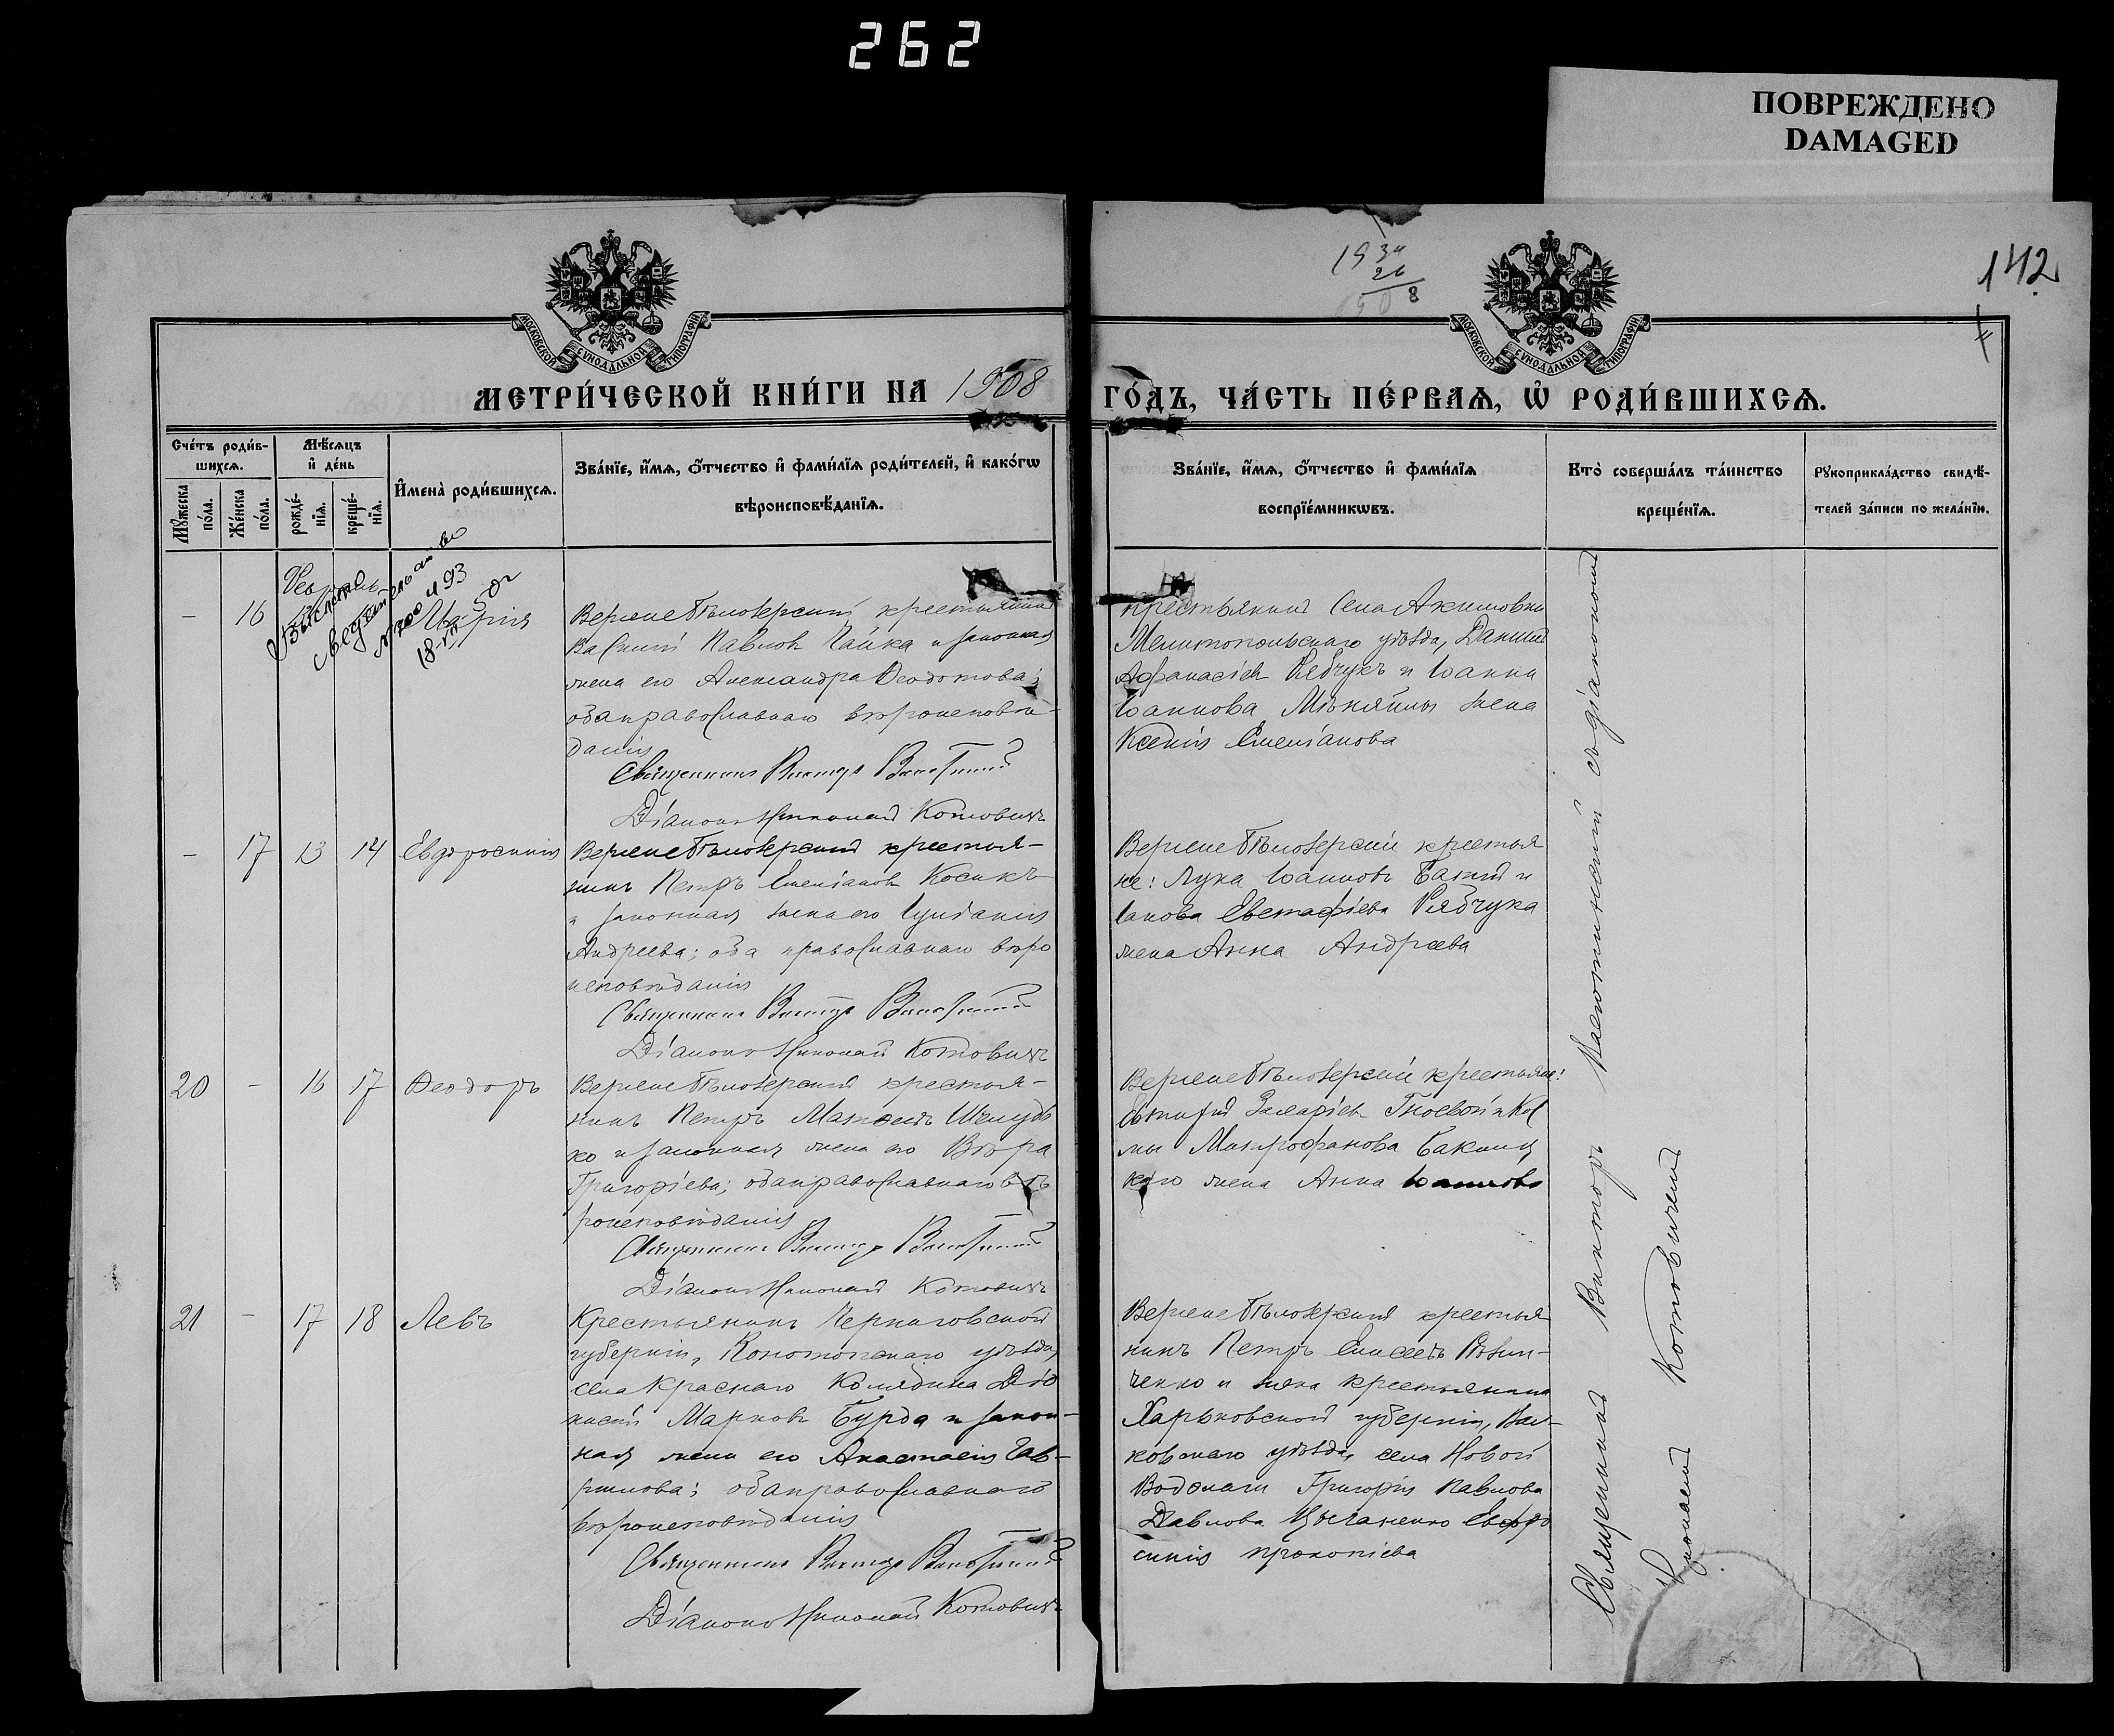 262
ПОВРЕЖДЕНО
DAMAGED
142
19 34
26
8
МОСКОВСКОЙ СѴНОДАЛЬНОЙ ТИПОГРАФІИ
МОСКОВСКОЙ СѴНОДАЛЬНОЙ ТИПОГРАФІИ
МЕТРИ́ЧЕСКОЙ КНИ́ГИ НА 1908
ГО́ДЪ, ЧА́СТЬ ПЕ́РВАѦ, Ѡ РОДИ́ВШИХСѦ.
Сче́тъ роди́в-
шихсѧ.
Мꙋ́жеска
по́ла.
Же́нска
по́ла.
Мѣ́сѧцъ
и҆ де́нь
рожде́-
нїѧ.
креще́-
нїѧ.
И҆мена̀ роди́вшихсѧ.
Зва́нїе, и҆́мѧ, ѻ҆́тчество и҆ фами́лїѧ роди́телей, и҆ како́гѡ
вѣроисповѣ́данїѧ.
Зва́нїе, и҆́мѧ, ѻ҆́тчество и҆ фами́лїѧ
воспрїе́мникѡвъ.
Кто̀ соверша́лъ та́инство
креще́нїѧ.
Рꙋкоприкла́дство свидѣ́-
телей за́писи по жела́нїю.
Февраль
– 16 Марія
№ 700 и 93
18-VII 50 г
Верхне Бѣлозерский крестьянинъ
Василій Павловъ Чайка и законная
жена его Александра Ѳеодотова;
оба православнаго вѣроисповѣ-
данія
Священникъ Викторъ
Діаконъ Николай Котовичъ
крестьянинъ Села Акимовки
Мелитопольскаго уѣзда, Даниилъ
Афанасіевъ Рябчукъ и Іоанна
Іоаннова жена
Ксенія Емеліанова
– 17 13 14 Евфросинія
Верхне Бѣлозерский крестья-
нинъ Петръ Емеліановъ Косикъ
и законная жена его Іуліанія
Андреева; оба православнаго вѣро
исповѣданія
Священникъ Викторъ
Діаконъ Николай Котовичъ
Верхне Бѣлозерскіи крестья
не: Лука Іоанновъ и
Іакова Евстафіева Рябчука
жена Анна Андреева
20 – 16 17 Ѳеодоръ
Верхне Бѣлозерский крестья-
нинъ Петръ Матѳеевъ
ко и законная жена его Вѣра
Григоріева; оба православнаго вѣ
роисповѣданія
Священникъ Викторъ
Діаконъ Николай Котовичъ
Верхне Бѣлозерскіи крестьяне:
Захаріевъ Гноевой и Кос
мы Митрофанова
жена Анна Іоаннова
21 – 17 18 Левъ
Крестьянинъ Черниговской
губерніи, Конотопскаго уѣзда,
села Краснаго Колядина Діо
нисій Марковъ Бурда и закон-
ная жена его Анастасія Гав-
риилова; оба православнаго
вѣроисповѣданія
Священникъ Викторъ
Діаконъ Николай Котовичъ
Верхне Бѣлозерский крестья
нинъ Петръ Елисеевъ
ченко и жена крестьянина
Харьковской губерніи, Вал-
ковскаго уѣзда, села Новой
Водолаги Григорія Павлова
Павлова Цыганенко Евфро
синія Прокопіева
Священникъ Викторъ съ діакономъ
Николаемъ Котовичемъ